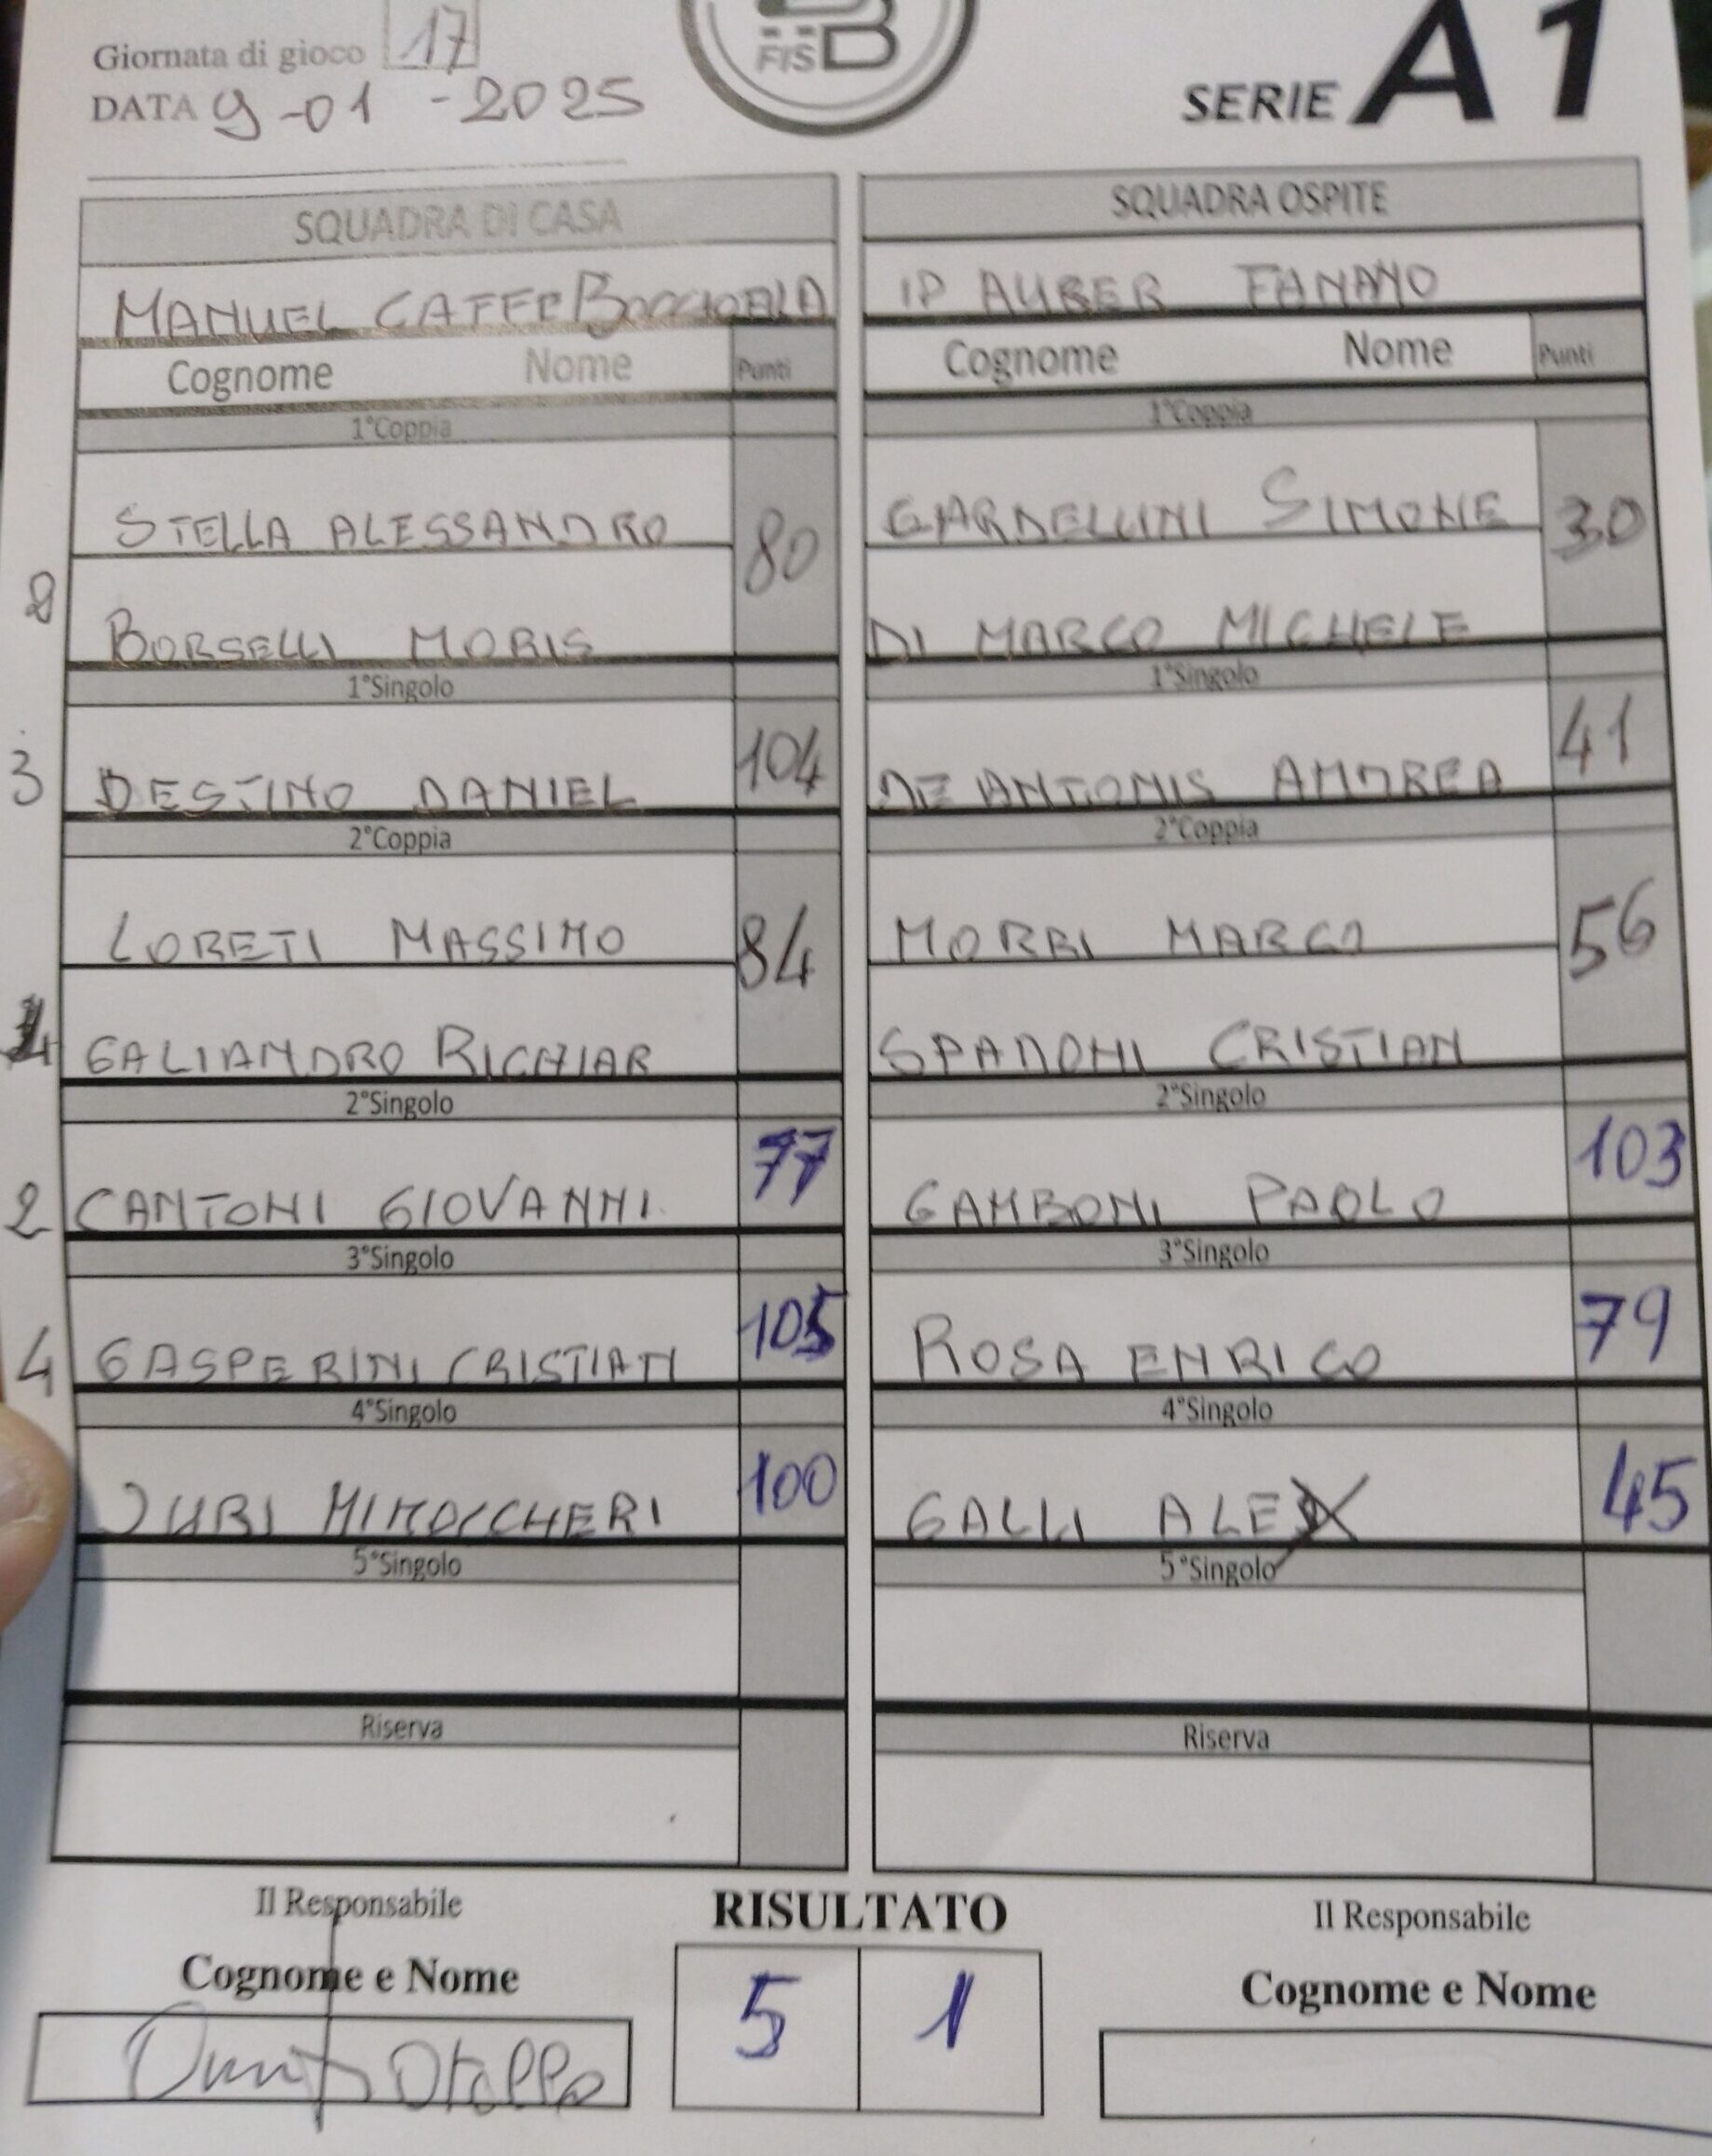 Giornata di gioco 17
DATA 9-01-2025
FISB
SERIE A1
SQUADRA DI CASA
MANUEL CAFFE
SQUADRA OSPITE
IP AUBER FANANO
Cognome Nome Punti
Cognome Nome Punti
1°Coppia
1°Coppia
STELLA ALESSANDRO 80
GARDELLINI SIMONE 30
BORSELLI MORIS
DI MARCO MICHELE
1°Singolo
1°Singolo
3 DESTINO DANIEL 104
DE ANTONIS ANDREA 41
2°Coppia
2°Coppia
LORETI MASSIMO 84
MORRI MARCO 56
GALIANDRO RICHIAR
SPADONI CRISTIAN
2°Singolo
2°Singolo
2 CANTONI GIOVANNI 77
GAMBONI PAOLO 103
3°Singolo
3°Singolo
4 GASPERINI CRISTIAN 105
ROSA ENRICO 79
4°Singolo
4°Singolo
100
GALLI ALEX 45
5°Singolo
5°Singolo
Riserva
Riserva
Il Responsabile
RISULTATO
Il Responsabile
Cognome e Nome
5 1
Cognome e Nome